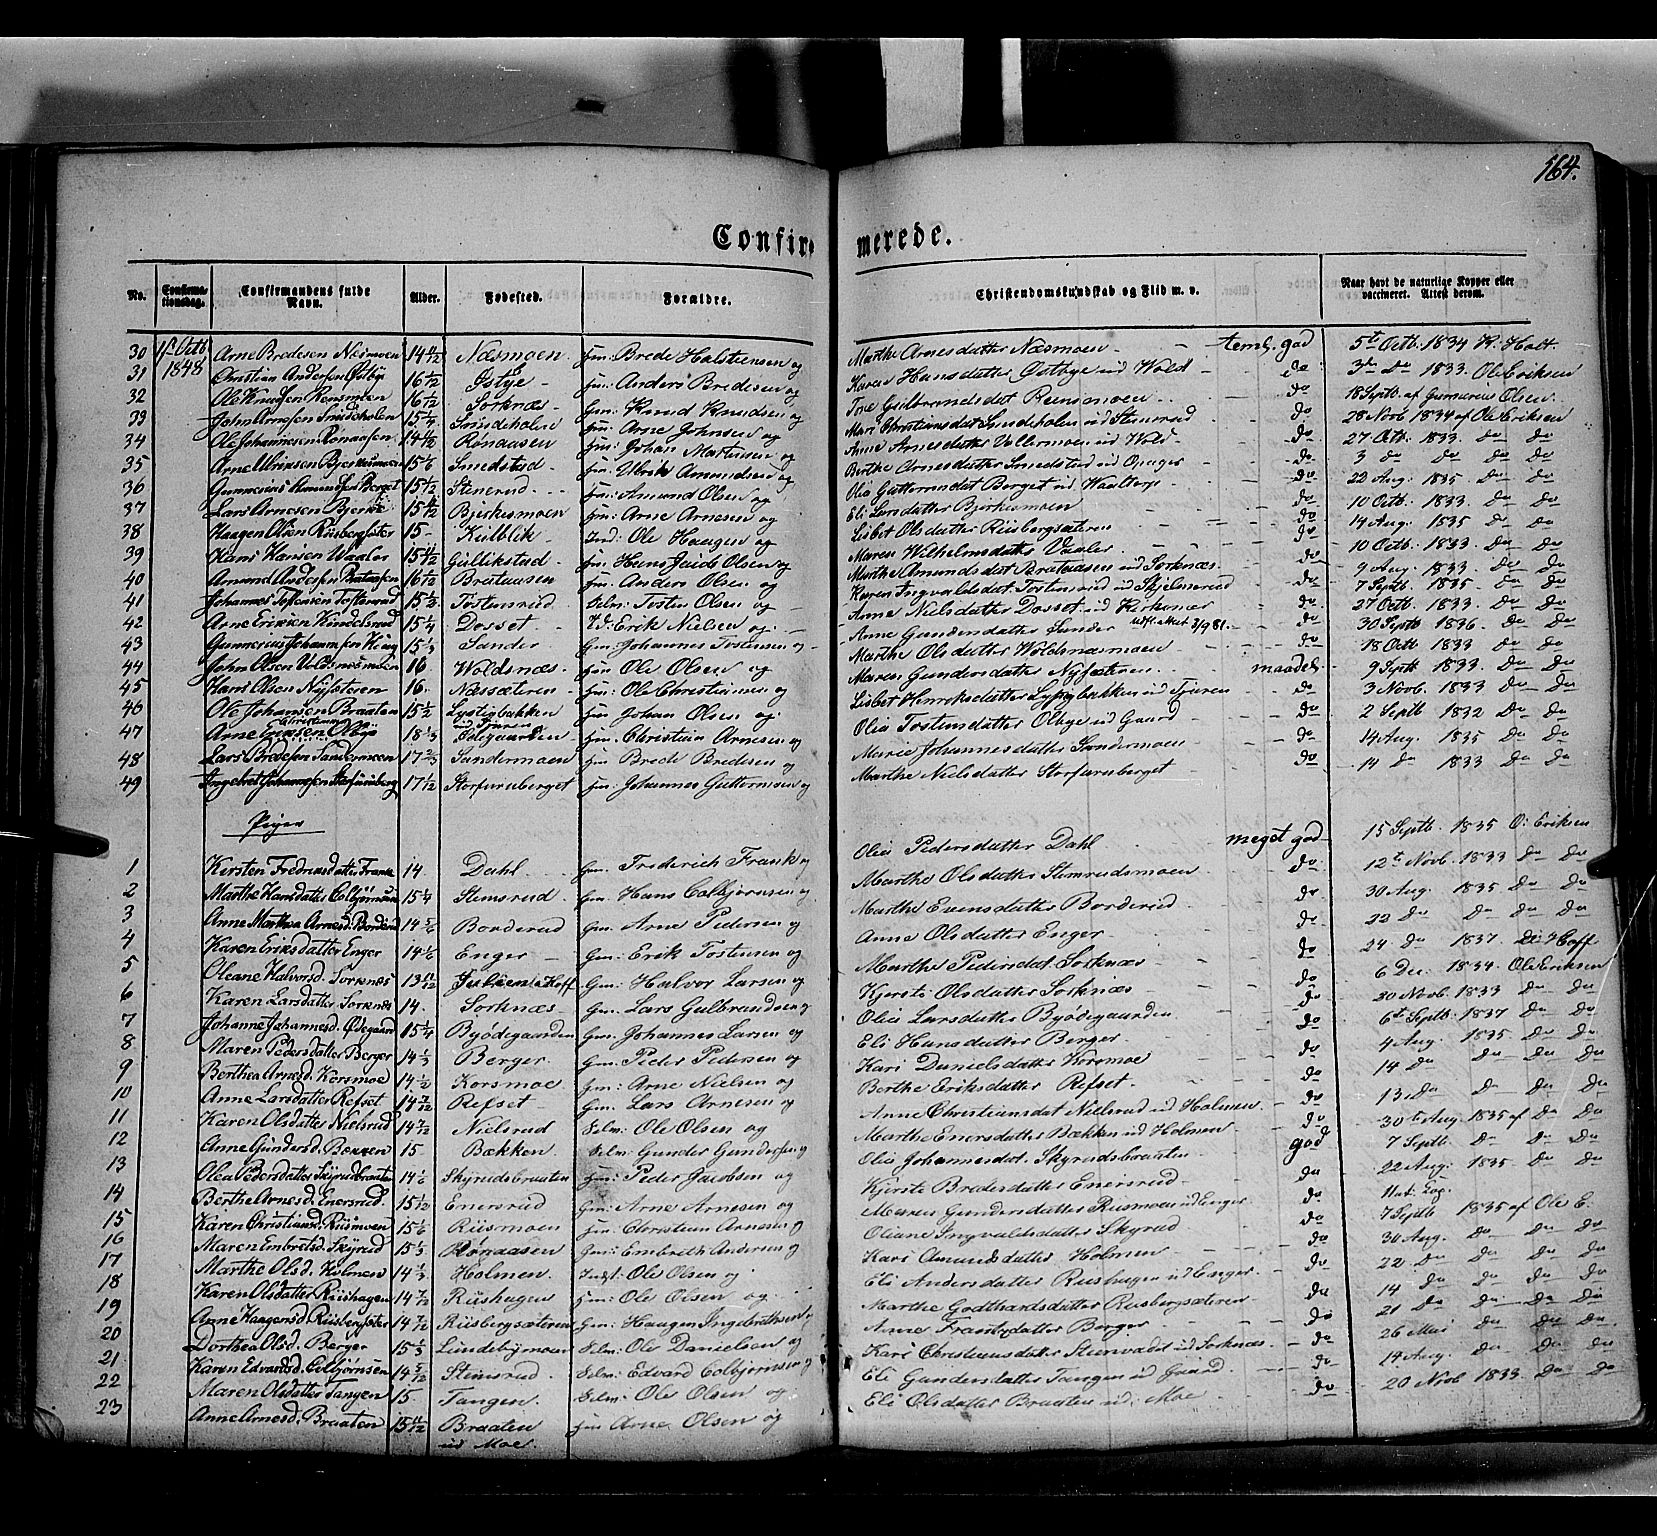 164.
Confirmerede.
No. Confirmationsdag. Confirmandens fulde Navn. Alder. Fødested. Forældre. Christendomskundskab og Flid m. v. Naar havt de naturlige Kopper eller vaccineret. Attest derom.
30 1ste Octb 1848 Arne Bredesen Næsmoen 14 11/12 Næsmoen Gm: Brede Halstensen og Marthe Arnesdatter Næsmoen temlg. god 5t Octb. 1834 H. Hoff
31 Christian Andersen Østbye 16 1/2 Østbye Gm: Anders Bredesen og Karen Hansdatter Østbye ud Wold do 3die Do 1833. Ole Eriksen
32 Ole Knudsen 16 1/2 Sorknæs Gm: Knud Knudsen og Tore Gulbrandsdat do 18 Septb. af Gunnerus Olsen
33 John Arnesen Smideholen 15 3/4 Smideholen Gm: Arne Johnsen og Mari Christiansdat Smideholen ud Stenerud do 28 Novb 1834 af Ole Eriksen
34 Ole Johannesen Rønaasen Rønaasen Gm: Johan Martinsen og Anne Arnesdatter Vollermoen ud Wold do 27 Octb. 1833. Do Do
35 Arne Ulriksen 15 1/6 Smedstad Gm: Ulrik Amundsen og Berthe Arnesdatter Smedstad ud Opager do 3 Do Do Do Do
36 Gunnerius Amundsen Berget 15 Stenerud Gm: Amund Olsen og Olia Guttormsdat Berget ud Waaltorp do 22 Aug. 1835 Do Do
37 Lars Arnesen Bjerke 15 Bjerkesmoen Gm: Arne Arnesen og Eli Larsdatter Bjerkesmoen do 10 Octb. 1833. Do Do
38 Haagen Olsen Riisbergsæter 15 Kulblik Ind: Ole Haagen og Lisbet Olsdatter Riisbergsæteren do 14 Aug. 1835 Do Do
39 Hans Hansen Waaler 15 Gullikstad Gm: Hans Olsen og Maren Wilhelmsdatter Vaaler do 10 Octb. 1833. Do Do
40 Amund Andersen Brataasen 16 1/2 Brataasen Gm: Anders Olsen og Marthe Amundsdat Brataasen ud Sorknæs. do 9 Aug. 1833. Do Do
41 Johannes Tostensen Tostenrud 15 Tostenrud Selm: Tosten Olsen og Karen Ingvaldsdat Tostenrud ud Skjelmerud do 7 Septb. 1835 Do Do
42 Arne Eriksen 15 1/4 Dosset Erik Nielsen og Anne Nielsdatter Dosset ud Kirkenær do 27 Octb. 1833. Do Do
43 Gunnerius Johannesen 15 1/3 Sander Gm: Johannes Tostensen og Anne Gundersdatter Sander udst. attest 2/9 81. do 30 Septb 1836 Do Do
44 John Olsen Voldsnæsmoen 16 Woldsnæs Gm: Ole Olsen og Marthe Olsdatter Woldsnæsmoen do 18 Octb 1833 Do Do
45 Hans Olsen Nysæteren 16. Næssæteren Gm: Ole Christiansen og Maren Gundersdatter Nysæteren maadel. 9 Septb 1833. Do Do
46 Ole Johansen Braaten 15 1/2 Lystigbakken Gm: Johan Olsen og Lisbet Henriksdatter Lystigbakken ud do 3 Novb. 1833. Do Do
47 Arne Christiansen Olbye 18 1/3 Gm: Christian Arnesen og Olia Tostensdatter Olbye ud Gaard do 2 Septb 1832 Do Do
48 Lars Bredesen Sandermoen 17 2/3 Sandermoen Gm Brede Bredesen og Marie Johannesdatter Sandermoen do 14 Aug. 1835 Do Do
49 Ingebret Johannesen Storfuruberg 17 1/2 Storfuruberget Gm: Johannes Guttormsen og Marthe Nielsdatter Storfuruberget do 14 Do 1833 Do Do
Piger
1 Kersten Fredriksdatter Frank 14 Dahl Gm: Frederich Frank og Olia Pedersdatter Dahl meget god 15 Septb. 1835 O: Eriksen
2 Marthe Hansdatter Colbjørnsen 15 1/4 Stemsrud Gm: Hans Colbjørnsen og Marthe Olsdatter Stemsrudsmoen do 12t Novb. 1833 Do Do
3 Anne Marthea Arnesd. Borderud 14 5/6 Borderud Gm: Arne Pedersen og Marthe Evensdatter Borderud do 30 Aug. 1835 Do Do
4 Karen Eriksdatter Enger 14 1/6 Enger Gm: Erik Tostensen og Anne Olsdatter Enger do 22 Do Do Do Do
5 Oleane Halvorsd. Sorknæs 13 11/12 Hoff Gm: Halvor Larsen og Marthe Pedersdat. Sorknæs do 24 Do 1837. Hoff
6 Karen Larsdatter Sorknæs 14 Sorknæs Gm: Lars Gulbrandsen og Kjersti Olsdatter Sorknæs do 6 Dec. 1834. Ole Eriksen
7 Johanne Johannesd. Ødegaard 15 1/4 Byødegaarden Gm: Johannes Larsen og Olia Larsdatter Byødegaarden do 20 Novb. 1833 Do Do
8 Maren Pedersdatter Berger 14 1/3 Berger Gm: Peder Pedersen og Eli Hansdatter Berger do 6te Septb 1837 Do Do
9 Berthea Arnesd. Korsmoe 14 1/2 Korsmoe Gm: Arne Nielsen og Kari Danielsdatter Korsmoe do 4 Aug. 1835 Do Do
10 Anne Larsdatter Refset 14 7/12 Refset Gm: Lars Arnesen og Berthe Eriksdatter Refset do 14 Do Do Do Do
11 Karen Olsdatter Nielsrud 14 7/12 Nielsrud Selm: Ole Olsen og Anne Christiansdat Nielsrud ud Holmen do 13 Do Do Do Do
12 Anne Gundersd. Bækken 15 Bækken Selm: Gunder Gundersen og Marthe Enersdatter Bækken ud Holmen god 30te Aug 1835 af Do Do
13 Olea Pedersdatter Skyrudsbraaten 14 1/6 Skyrudsbraaten Gm: Peder Jacobsen og Olia Johannesdat. Skyrudsbraaten do 7 Septb Do Do Do
14 Berthe Arnesd. Enersrud 15 1/12 Enersrud Gm: Arne Arnesen og Kjersti Bredesdatter Enersrud do 22 Aug. 1835 Do Do
15 Karen Christiansd. Riismoen 15 1/6 Riismoen Gm: Christian Arnesen og Maren Gundersdatter Riismoen ud Enger do
16 Maren Embretsd. Skyrud 15 1/3 Rønaasen Gm: Embret Andersen og Oliane Ingvaldsdatter Skyrud do 7 Septb 1835 af Ole E.
17 Marthe Olsd. Holmen 14 1/3 Holmen Indst: Ole Olsen og Kari Amundsdatter Holmen do 30 Aug. Do Do Do
18 Karen Olsdatter Riishagen 14 7/12 Riishagen Gm: Ole Olsen og Eli Andersdatter Riishagen ud Enger do 22 Do Do Do Do
19 Anne Haagensd. Riisbergsæter 14 7/12 Riisbergsæteren Gm: Haagen Ingebrethsen og Marthe Godthardsdatter Riisbergsæteren do 14 Do Do Do Do
20 Dorthea Olsd. Berger 15 1/3 Lundebymoen Selm: Ole Danielsen og Anne Berger do 21 Do Do Do Do
21 Karen Edvardsd. Colbjørnsen 14 5/12 Stemsrud Selm: Edvard Colbjørnsen og Kari Christiansdatter ud Sorknæs do 26 Mai Do Do Do
22 Maren Olsdatter Tangen 15 Tangen Selm: Ole Olsen og Eli Gundersdatter Tangen ud Gaard do 14 Aug. Do Do Do
23 Anne Arnesd. Braaten 15 11/12 Braaten ud Moe. Gm Arne Olsen og Eli Olsdatter Braaten ud Moe do 20 Novb 1833. Do Do